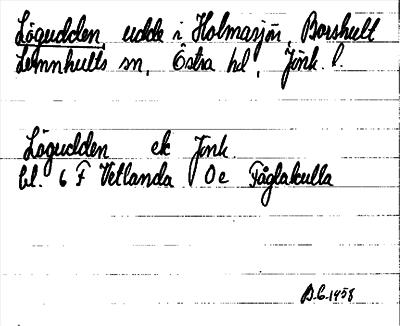 Lögudden, udde i Holmasjön, Borshult
Lemnhults sn, Östra hd, Jönk. l.
Lögudden ek Jönk.
bl. 6 F Vetlanda 0e Fåglakulla
B.C. 1958